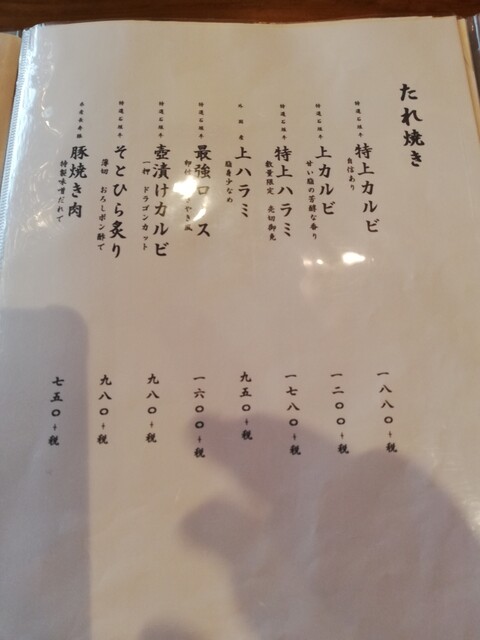 たれ焼き
特選石垣牛
特上カルビ
自信あり
一八八〇+税
特選石垣牛
上カルビ
甘い脂の芳醇な香り
一二〇〇+税
特選石垣牛
特上ハラミ
数量限定 売切御免
一七八〇+税
上ハラミ
脂身少なめ
九五〇+税
特選石垣牛
最強ロース
一六〇〇+税
特選石垣牛
壺漬けカルビ
一押 ドラゴンカット
九八〇+税
特選石垣牛
そとひら炙り
薄切 おろしポン酢で
九八〇+税
豚焼き肉
特製味噌だれで
七五〇+税